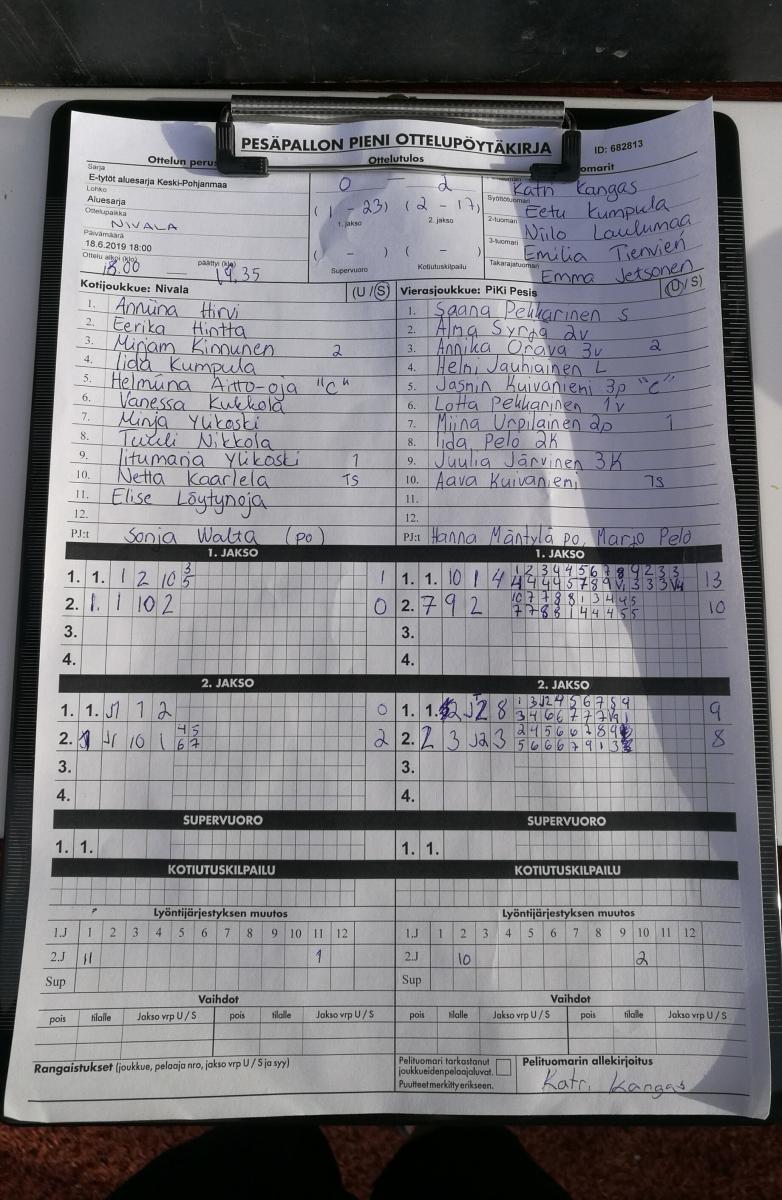 PESÄPALLON PIENI OTTELUPÖYTÄKIRJA
ID: 682813
Ottelun perus
Ottelutulos
omarit
Sarja
E-tytöt aluesarja Keski-Pohjanmaa
Lohko
Aluesarja
Ottelupaikka
NIVALA
Päivämäärä
18.6.2019 18:00
Ottelu alkoi (klo) päättyi (klo)
18.00 — 19.35
0 — 2
(1 - 23) (2 - 17)
1. jakso 2. jakso
( - ) ( - )
Supervuoro Kotiutuskilpailu
Katri Kangas
Syöttötuomari
Eetu Kumpula
2-tuomari
Niilo Laulumaa
3-tuomari
Emilia Tienvieri
Takarajatuomari
Emma Jetsonen
Kotijoukkue: Nivala (U / S)
1. Anniina Hirvi
2. Eerika Hintta
3. Mirjam Kinnunen 2
4. Iida Kumpula
5. Helmiina Aitto-oja "C"
6. Vanessa Kukkola
7. Minja Ylikoski
8. Tuuli Nikkola
9. Iitumaria Ylikoski 1
10. Netta Kaarlela TS
11. Elise Löytynoja
12.
PJ:t Sonja Walta (po)
Vierasjoukkue: PiKi Pesis (U / S)
1. Saana Pekkarinen S
2. Alma Syrjä 2v
3. Annika Orava 3v 2
4. Helmi Jauhiainen L
5. Jasmin Kuivaniemi 3p "C"
6. Lotta Pekkarinen 1v
7. Miina Urpilainen 2p 1
8. Iida Pelo 2K
9. Juulia Järvinen 3K
10. Aava Kuivaniemi TS
11.
12.
PJ:t Hanna Mäntylä po, Marjo Pelo
1. JAKSO
1. 1. 1 2 10 3 5 1
2. 1. 1 10 2 0
3.
4.
1. JAKSO
1. 1. 10 1 4 13
2. 7 9 2 10
3.
4.
2. JAKSO
1. 1. J1 1 2 0
2. J1 10 1 4 5 6 7 2
3.
4.
2. JAKSO
1. 1. J2 8 9
2. 2 3 J2 3 8
3.
4.
SUPERVUORO
1. 1.
SUPERVUORO
1. 1.
KOTIUTUSKILPAILU
KOTIUTUSKILPAILU
Lyöntijärjestyksen muutos
1.J 1 2 3 4 5 6 7 8 9 10 11 12
2.J 11 1
Sup
Lyöntijärjestyksen muutos
1.J 1 2 3 4 5 6 7 8 9 10 11 12
2.J 10 2
Sup
Vaihdot
pois tilalle Jakso vrp U / S pois tilalle Jakso vrp U / S
Vaihdot
pois tilalle Jakso vrp U / S pois tilalle Jakso vrp U / S
Rangaistukset (joukkue, pelaaja nro, jakso vrp U / S ja syy)
Pelituomari tarkastanut
joukkueiden pelaajaluvat.
Puutteet merkitty erikseen.
Pelituomarin allekirjoitus
Katri Kangas